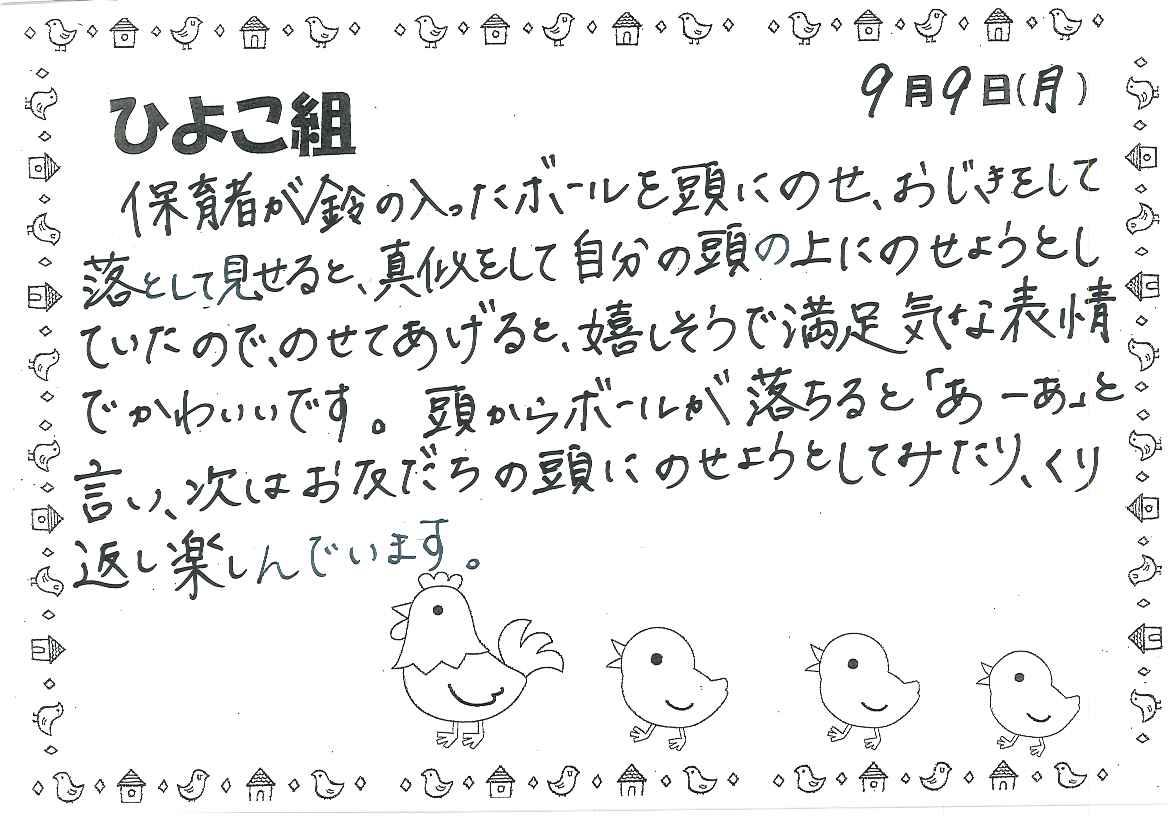 9月9日(月)
ひよこ組
保育者が鈴の入ったボールを頭にのせ、おじぎをして
落として見せると、真似をして自分の頭の上にのせようとし
ていたので、のせてあげると、嬉しそうで満足気な表情
でかわいいです。頭からボールが落ちると「あーあ」と
言い、次はお友だちの頭にのせようとしてみたり、くり
返し楽しんでいます。